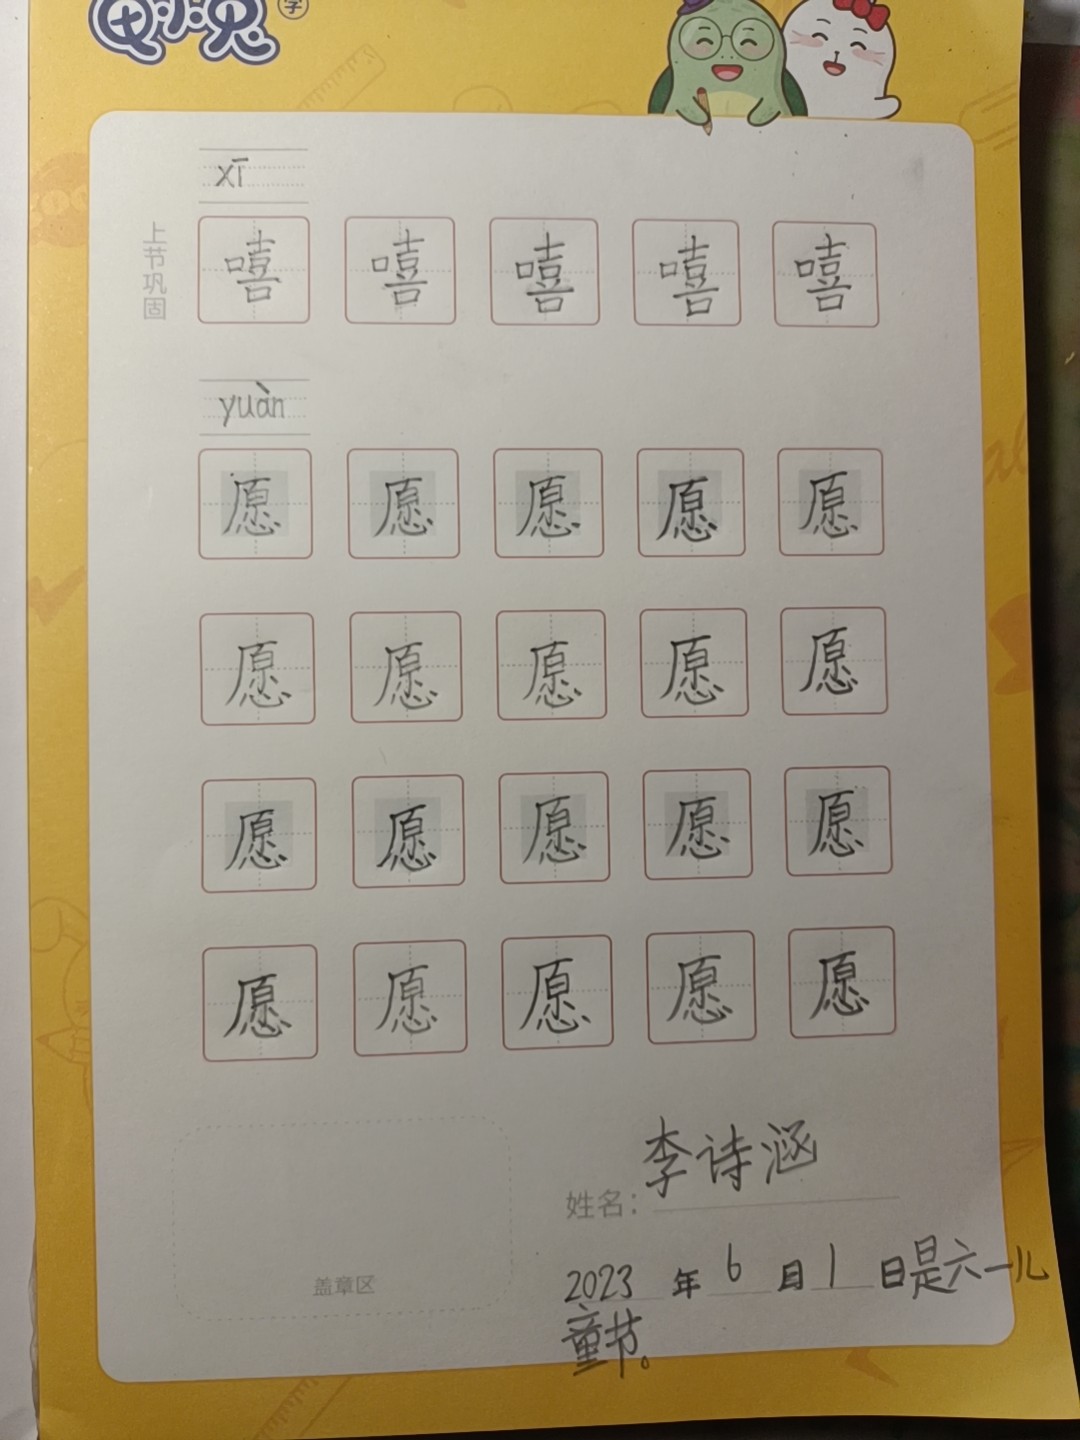 字
xī
上节巩固
嘻 嘻 嘻 嘻 嘻
yuàn
愿 愿 愿 愿 愿
愿 愿 愿 愿 愿
愿 愿 愿 愿 愿
愿 愿 愿 愿 愿
李诗涵
姓名：
盖章区
2023 年 6 月 1 日是六一儿
童节。